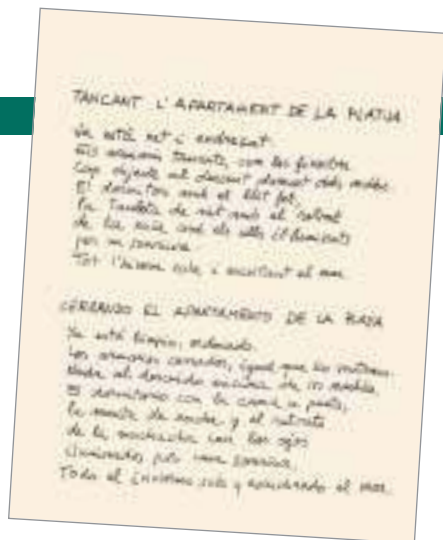 TANCANT L'APARTAMENT DE LA PLATJA
Ja està net i endreçat.
Els armaris tancats, com les finestres.
Cap objecte al descobert damunt dels mobles.
El dormitori amb el llit fet,
la tauleta de nit amb el retrat
de la noia amb els ulls il·luminats
per un somriure.
Tot l'hivern sola i escoltant el mar.
CERRANDO EL APARTAMENTO DE LA PLAYA
Ya está limpio, ordenado.
Los armarios cerrados, igual que las ventanas.
Nada al descuido encima de los muebles.
El dormitorio con la cama a punto,
la mesita de noche y el retrato
de la muchacha con los ojos
iluminados por una sonrisa.
Todo el invierno sola y escuchando el mar.